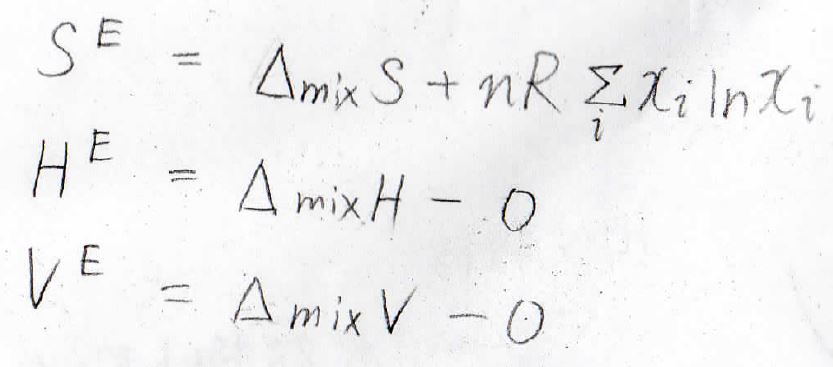 S^E = Δmix S + nR Σ_i x_i ln x_i
H^E = Δmix H − 0
V^E = Δmix V − 0